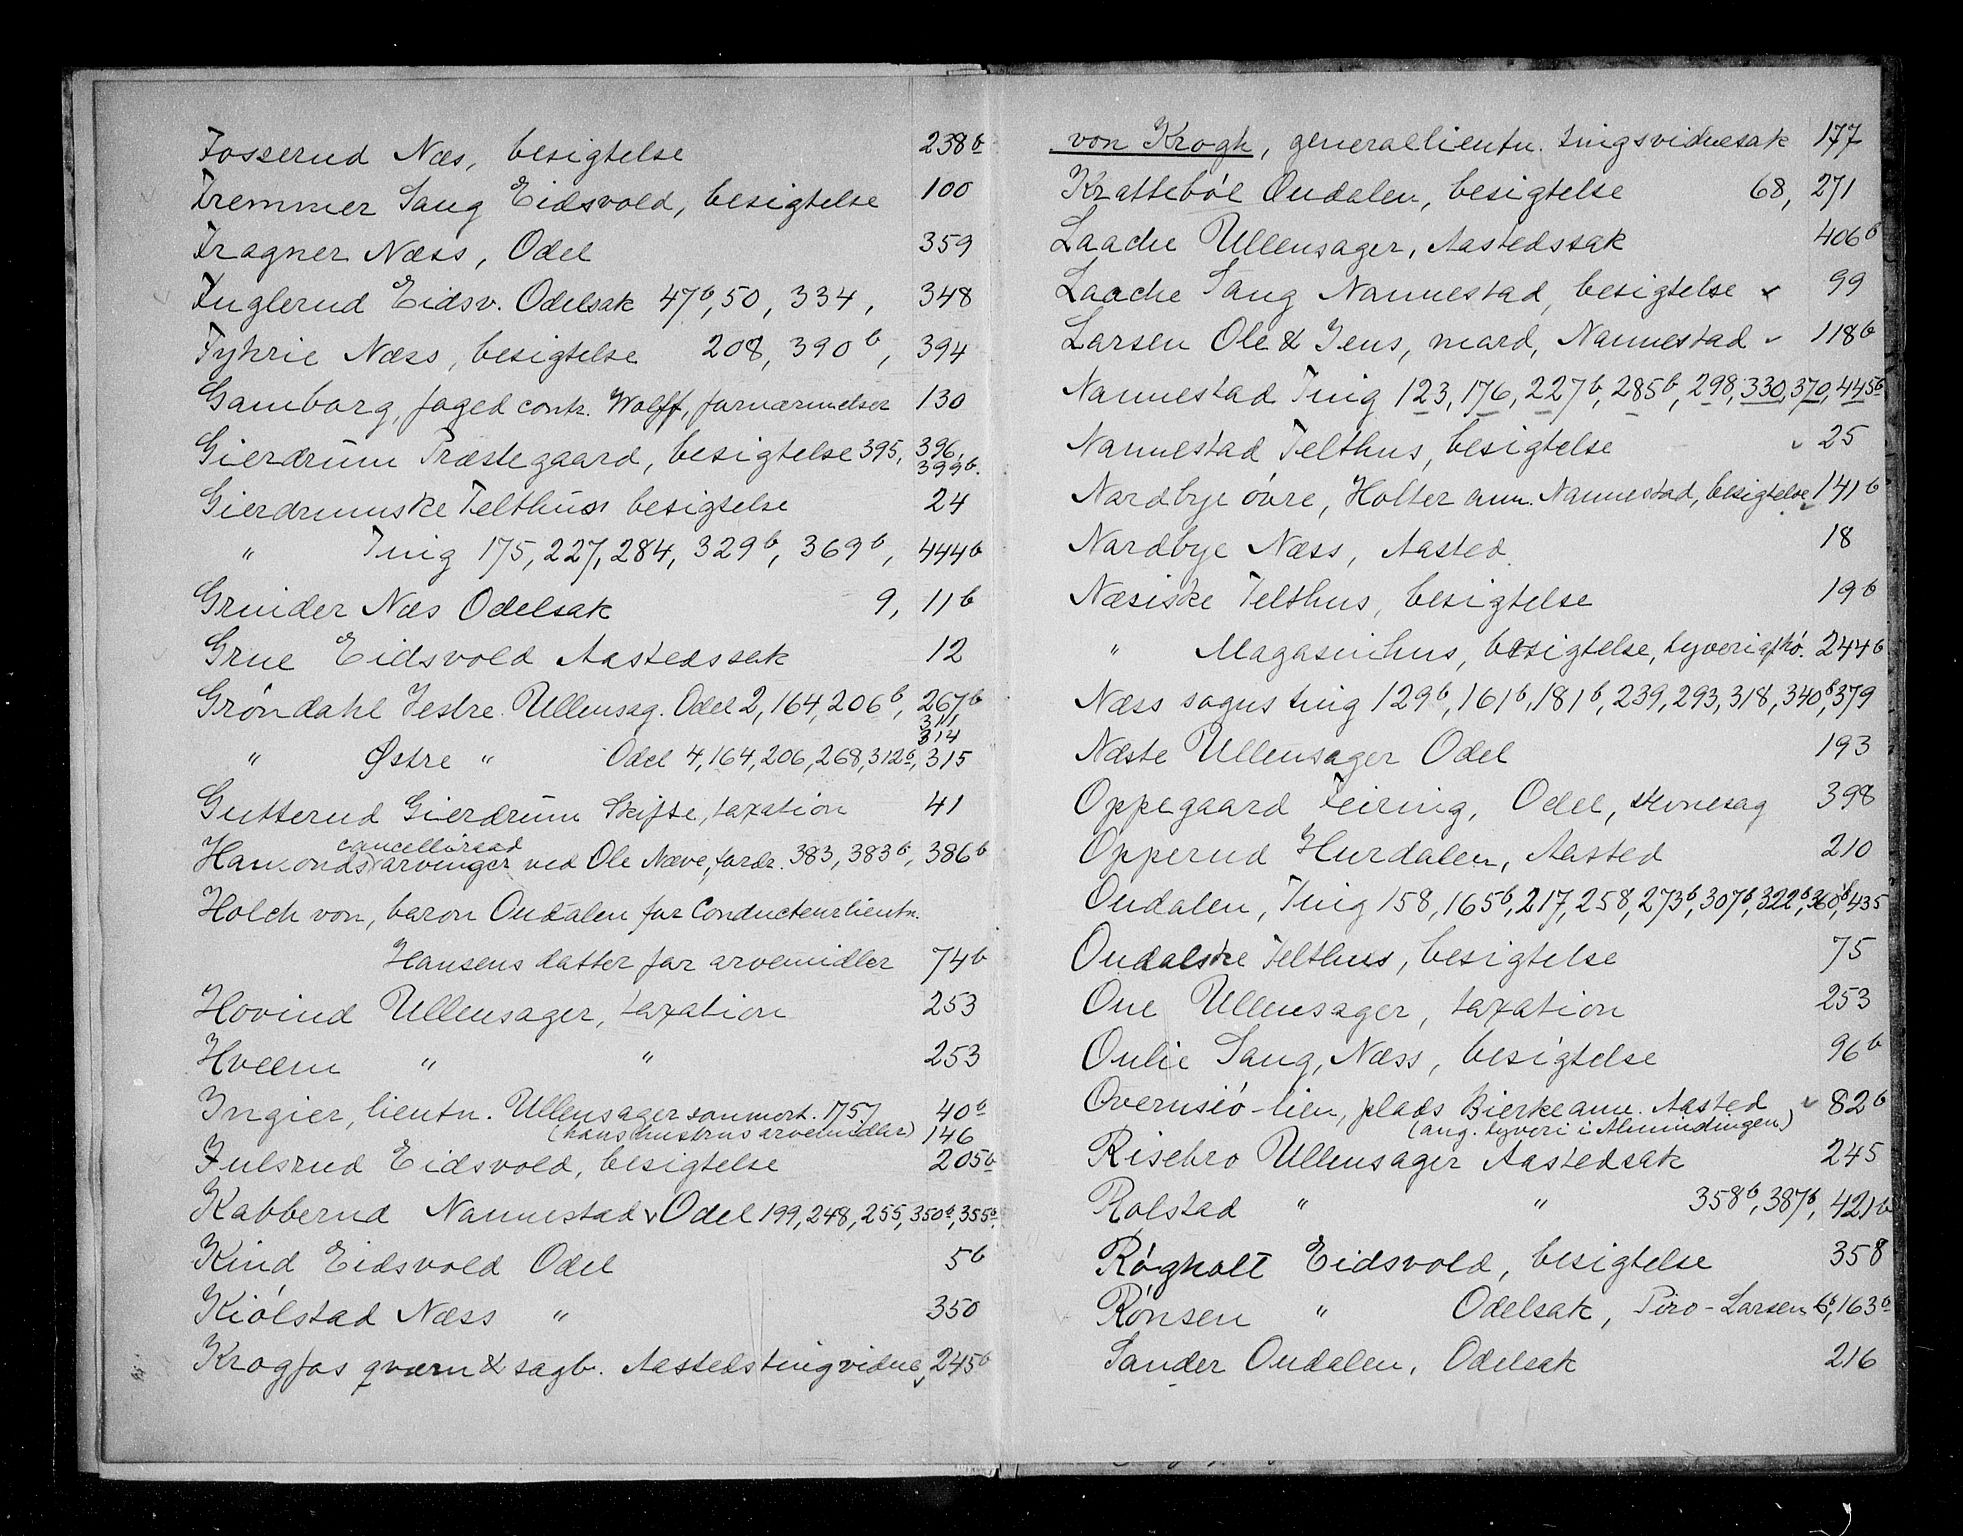 Fosserud Næs, besigtelse 238b
Fremmer Saug Eidsvold, besigtelse 100
Fragner Næss, Odel 359
Fuglerud Eidsv. Odelsak 47b, 50, 334, 348
Fyhrie Næss, besigtelse 208, 390b, 394
Gamborg, foged contr. Wolff, fornærmelser 130
Gierdrum Præstegaard, besigtelse 395, 396, 399b.
Gierdrumske Telthus besigtelse 24
" Ting 175, 227, 284, 329b, 369b, 444b
Grinder Næs Odelsak 9, 11b
Grue Eidsvold Aastedssak 12
Gröndahl Vestre Ullensag. Odel 2, 164, 206b, 267b
311
314
" Østre " Odel 4, 164, 206, 268, 312b, 315
Gutterud Gierdrum Skifte, taxation 41
cancelliraad
Hamonds arvinger ved Ole Næve, fordr. 383, 383b, 386b
Holck von, baron Oudalen for Conducteurlieutn.
Hansens datter for arvemidler 74b
Hovind Ullensager, taxation 253
Hveem " " 253
Ingier, lieutn. Ullensager sommert. 1757 40b
(hans hustrus arvemidler) 146
Julsrud Eidsvold, besigtelse 205b
Kabberud Nannestad v Odel 199, 248, 255, 350b, 355b.
Kind Eidsvold Odel 5b
Kiölstad Næss " 350
Krogfos qværn & sagb. Aastedstingvidne, 245b
von Krogh, generallieutn. tingsvidnesak 177
Krattebøl Oudalen, besigtelse 68, 271
Laache Ullensager, Aastedssak 406b
Laache Saug Nannestad, besigtelse v 99
Larsen Ole & Jens, mord, Nannestad v 118b
Nannestad Ting 123, 176, 227b, 285b, 298, 330, 370, 445b
Nannestad Telthus, besigtelse v 25
Nardbye övre, Holter ann. Nannestad, besigtelse v 141b
Nardbye Næss, Aasted 18
Næsiske Telthus, besigtelse 19b
" Magasinhus, besigtelse, tyverighö. 244b
Næss sogns ting 129b, 161b, 181b, 239, 293, 318, 340b, 379
Næste Ullensager Odel 193
Oppegaard Feiring, Odel, skovsag 398
Opperud Hurdalen, Aasted 210
Oudalen, Ting 158, 165b, 217, 258, 273b, 307b, 322b, 360b, 435
Oudalske Telthus, besigtelse 75
Oue Ullensager, taxation 253
Oulie Saug, Næss, besigtelse 96b
Overnsiö-lien, plads Bierke ann. Aasted v 82b
(ang. tyveri i Almindingen)
Risebro Ullensager Aastedsak 245
Rolstad " " 358b, 387b, 421b
Røgholt Eidsvold, besigtelse 358
Rönsen " Odelsak, Piro-Larsen 6b, 163b
Sander Oudalen, Odelsak 216